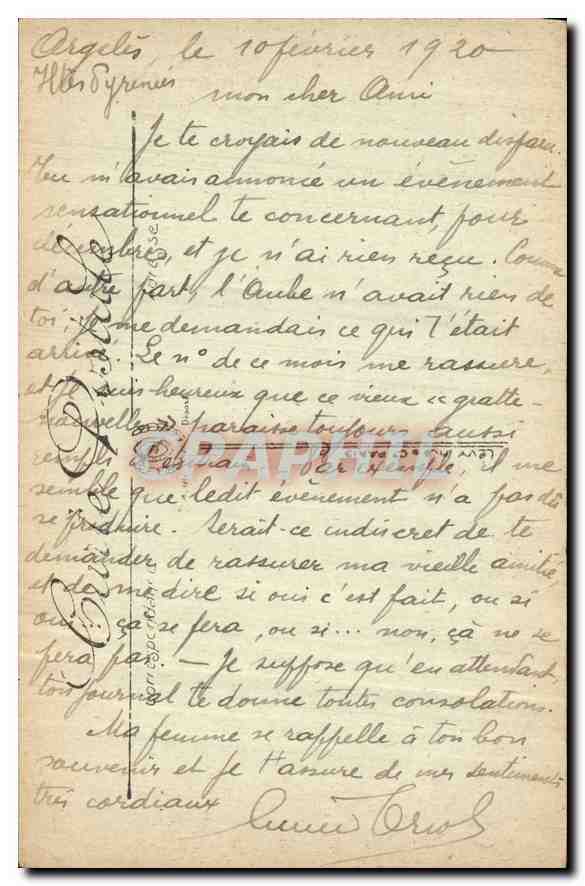 Argelès, le 10 février 1920
Htes Pyrénées
mon cher Ami
Je te croyais de nouveau disparu.
Tu m'avais annoncé un événement
sensationnel te concernant, pour
décembre, et je n'ai rien reçu. Comme
d'autre part, l'Aube n'avait rien de
toi, je me demandais ce qui t'était
arrivé. Le n° de ce mois me rassure,
et je suis heureux que ce vieux "gratte-
paraisse toujours aussi
rempli Par exemple, il me
semble que ledit événement n'a pas dû
se produire. Serait-ce indiscret de te
demander de rassurer ma vieille amitié,
et de me dire si oui c'est fait, ou si
oui ça se fera, ou si... non, çà ne se
fera pas. — Je suppose qu'en attendant,
ton journal te donne toutes consolations.
Ma femme se rappelle à ton bon
souvenir et je t'assure de mes sentiments
très cordiaux
Carte Postale
Correspondance
Adresse
PAPHIL